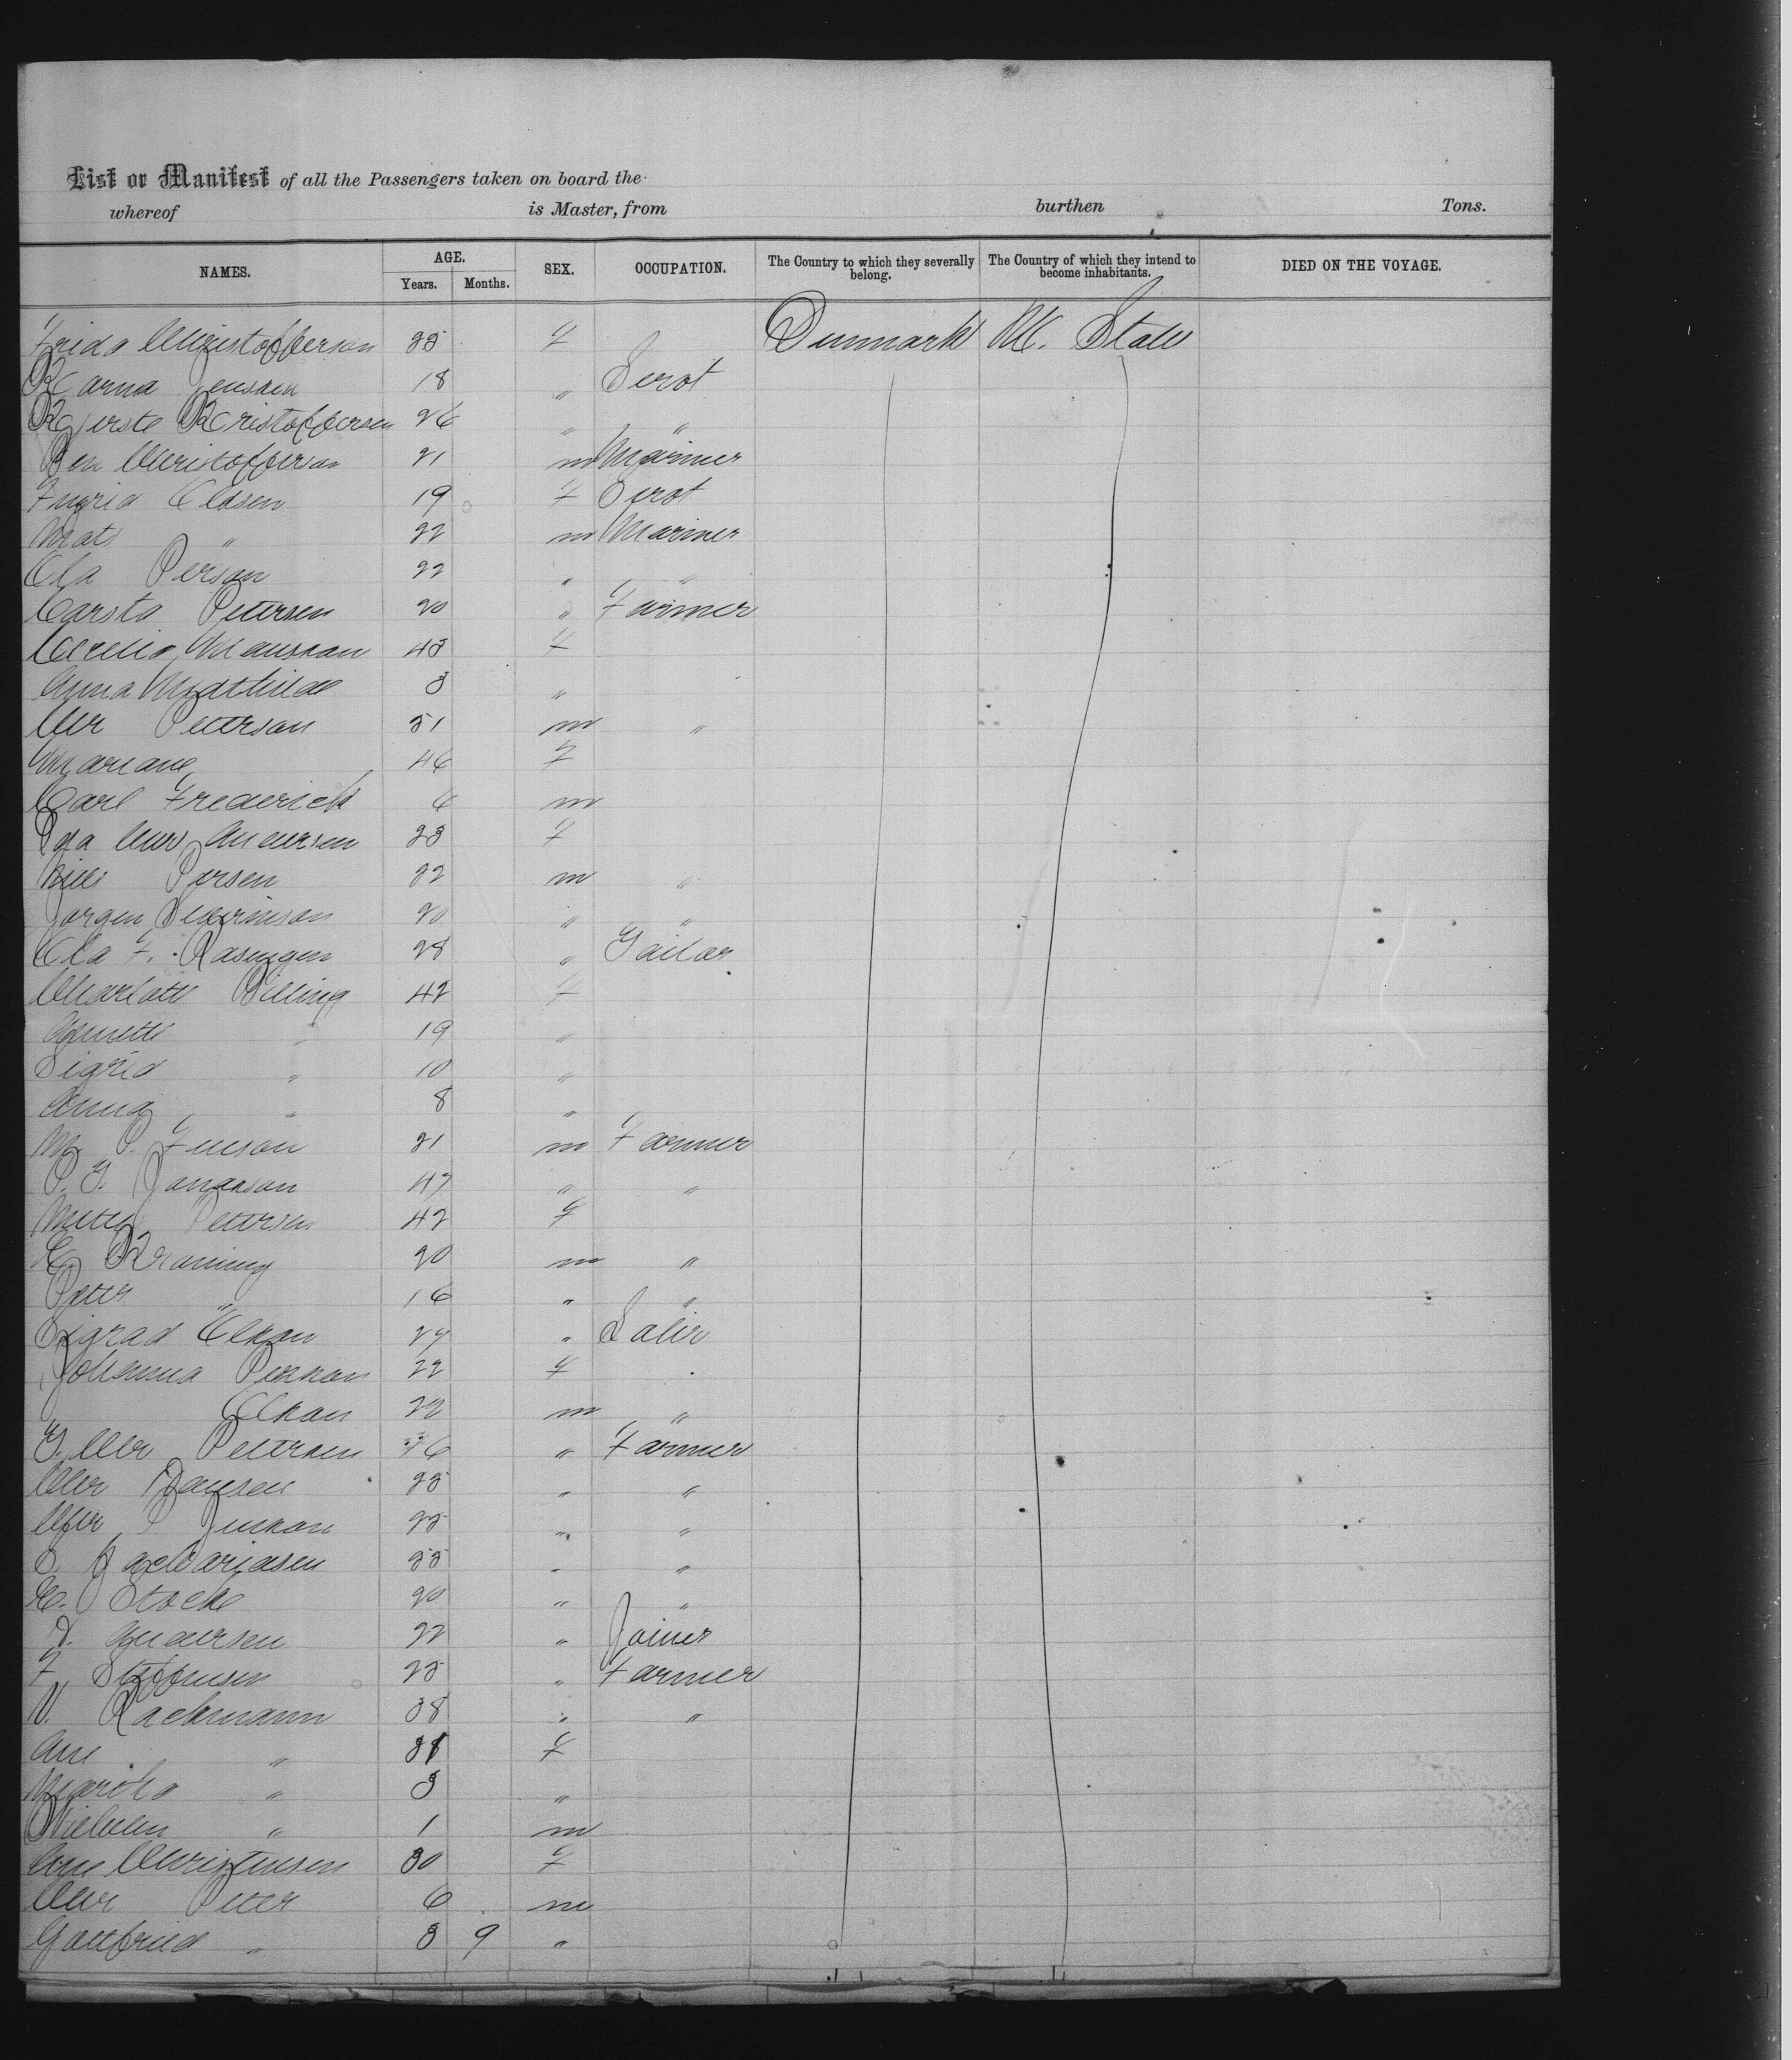 List or Manifest of all the Passengers taken on board the
whereof is Master, from burthen Tons.
NAMES. AGE. Years. Months. SEX. OCCUPATION. The Country to which they severally belong. The Country of which they intend to become inhabitants. DIED ON THE VOYAGE.
Frida Christofferson 25 F Denmark U. States
Karna Jensen 18 " Servt
Kjerste Kristoffersen 26 " "
Christofferson 21 m Mariner
Ingrid Olosen 19 F Servt
Mats " 22 m Mariner
Ola Person 22 " "
Carsta Petersen 20 " Farmer
43 F
Anna Mathilde 3 "
Chr Peterson 51 m "
Mariane 46 F
Carl Frederick 6 m
Ida Andersen 23 F
Nils Persen 22 m "
Jorgen 20 " "
Ola F. 28 " Tailor
Charlotte Billing 42 F
Annette " 19 "
Sigrid " 10 "
Anna " 8 "
21 m Farmer
P. T. 47 " "
Mette Petersen 42 F
Kroning 20 m "
Peter " 16 " "
Sigrad Olson 24 " Sailr
Johanna Person 22 F
Olson 22 m "
Chr Petersen 36 " Farmer
Chr Hansen 25 " "
Chr P Jenson 25 " "
Zachariasen 25 " "
Stocke 20 " "
Andersen 22 " Joiner
F Steffensen 25 " Farmer
N. Rackmann 38 " "
Ane " 31 F
Martha " 3 "
Wilhelm " 1 m
Ane Christensen 30 F
Chr Peter 6 m
Gottfried " 3 9 "